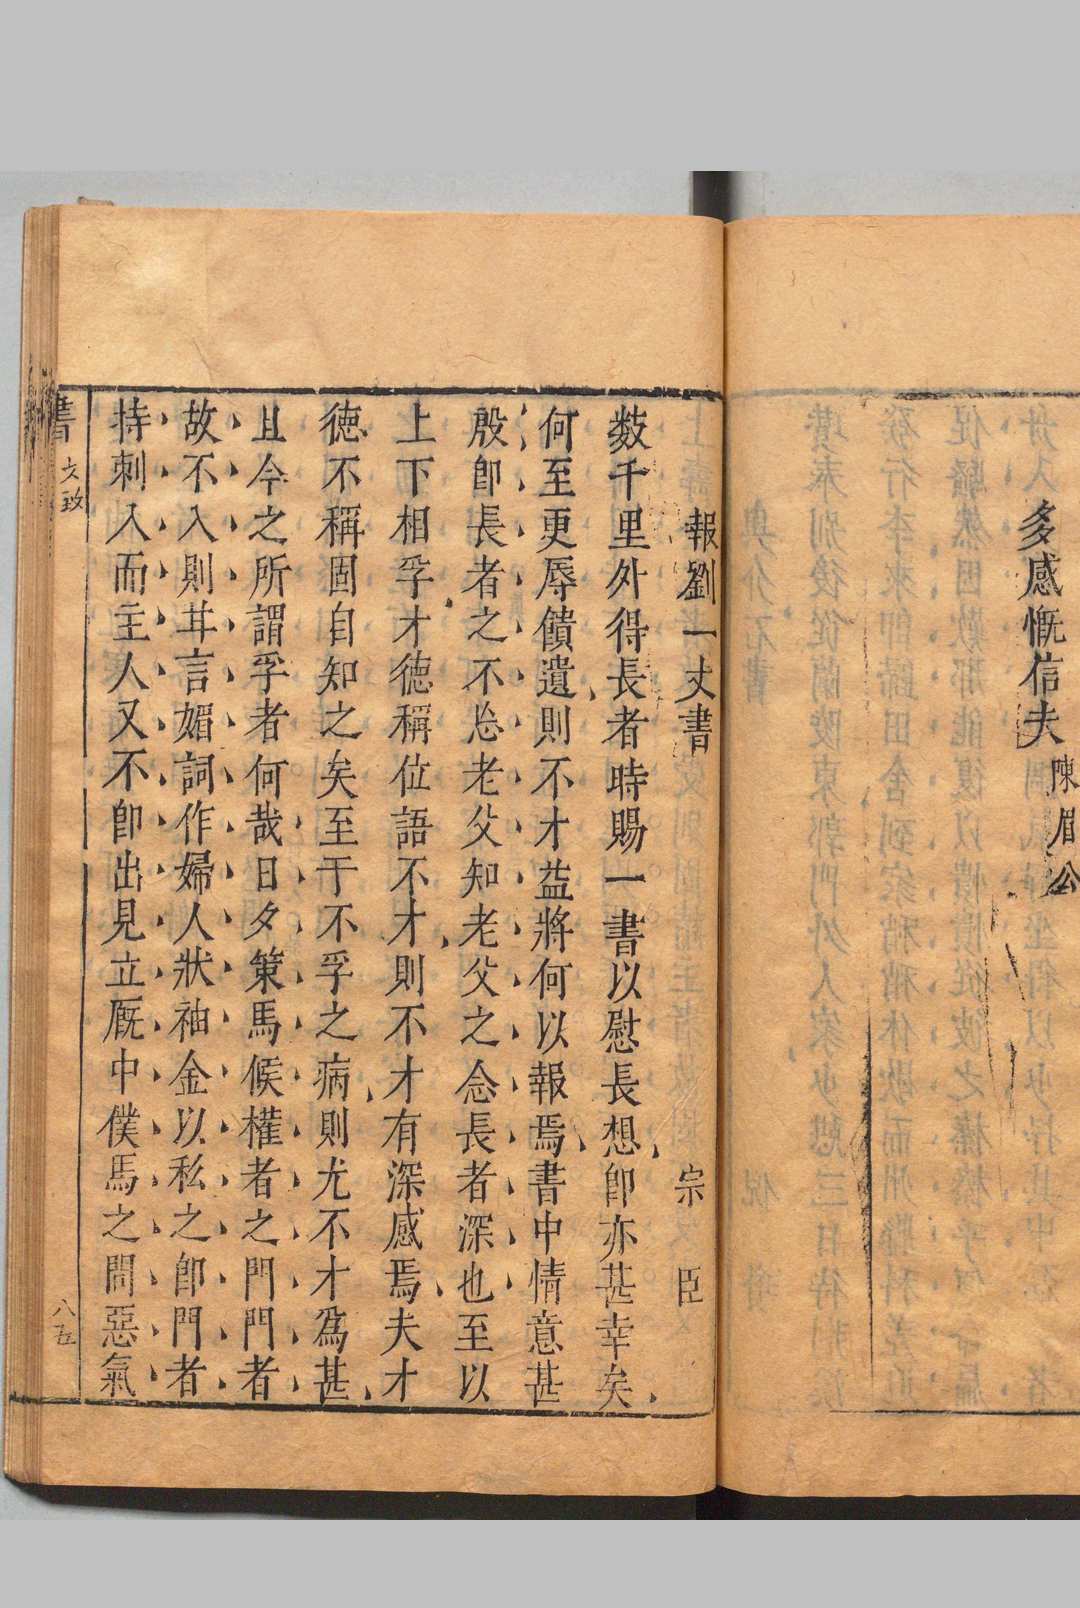 多感慨信夫 陳眉公
報劉一丈書 宗臣
數千里外得長者時賜一書以慰長想即亦甚幸矣
何至更辱饋遺則不才益將何以報焉書中情意甚
殷即長者之不忘老父知老父之念長者深也至以
上下相孚才德稱位語不才則不才有深感焉夫才
德不稱固自知之矣至于不孚之病則尤不才為甚
且今之所謂孚者何哉日夕策馬候權者之門門者
故不入則甘言媚詞作婦人狀袖金以私之即門者
持刺入而主人又不即出見立厩中僕馬之間惡氣
書 文致 八五